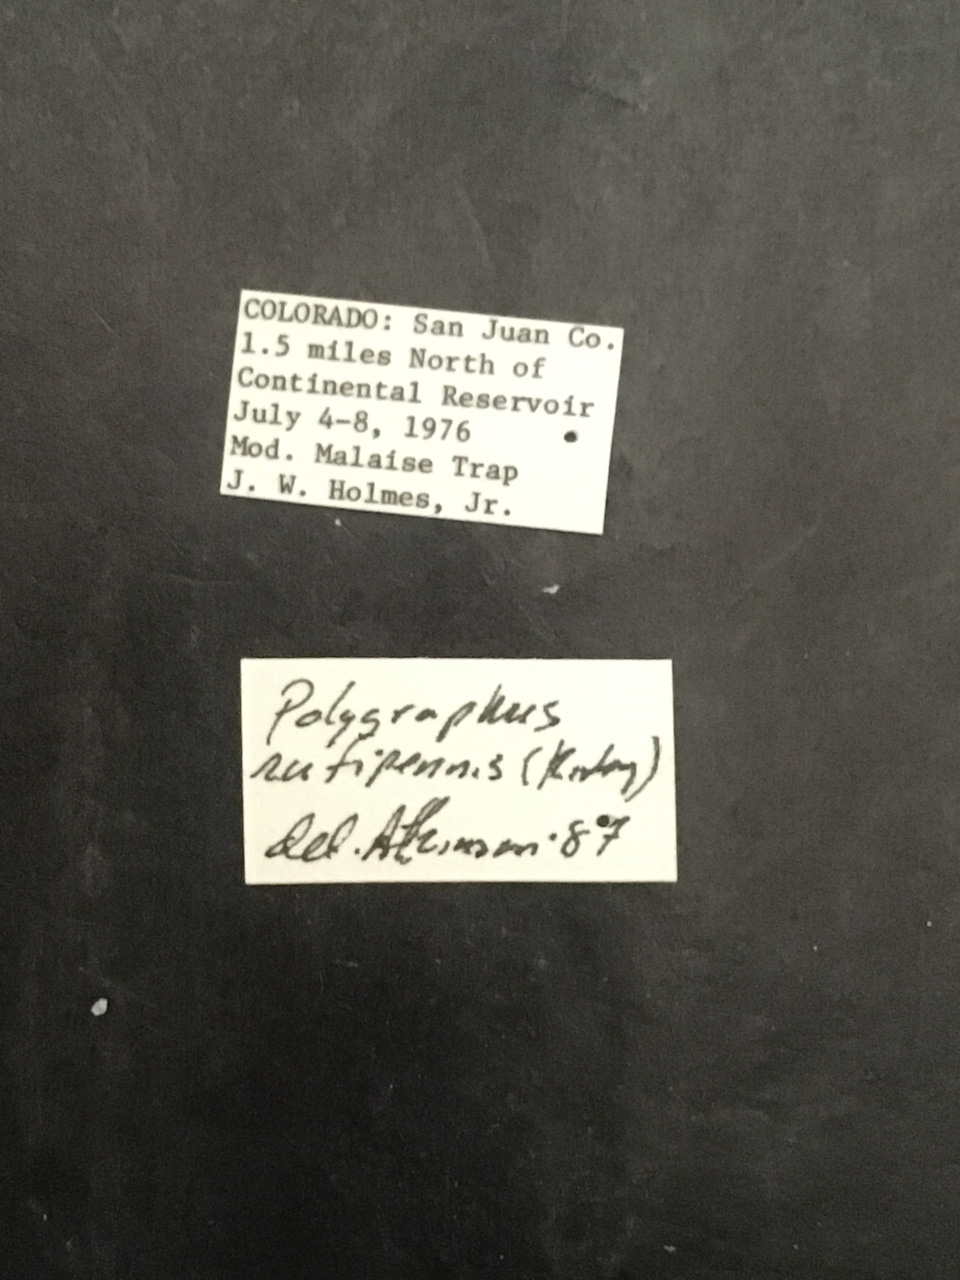 COLORADO: San Juan Co.
1.5 miles North of
Continental Reservoir
July 4-8, 1976
Mod. Malaise Trap
J. W. Holmes, Jr.
Polygraphus
rufipennis (Kirby)
det. Atkinson '87